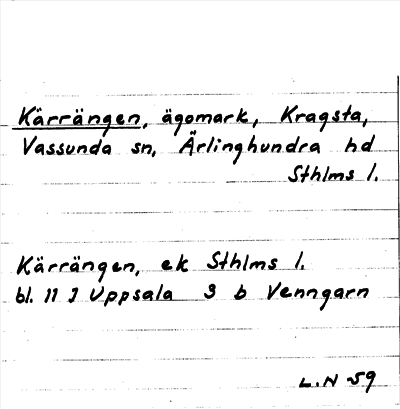 Kärrängen, ägomark, Kragsta,
Vassunda sn, Ärlinghundra hd
Sthlms l.
Kärrängen, ek Sthlms l.
bl. 11 J Uppsala 3 b Venngarn
L.N 59